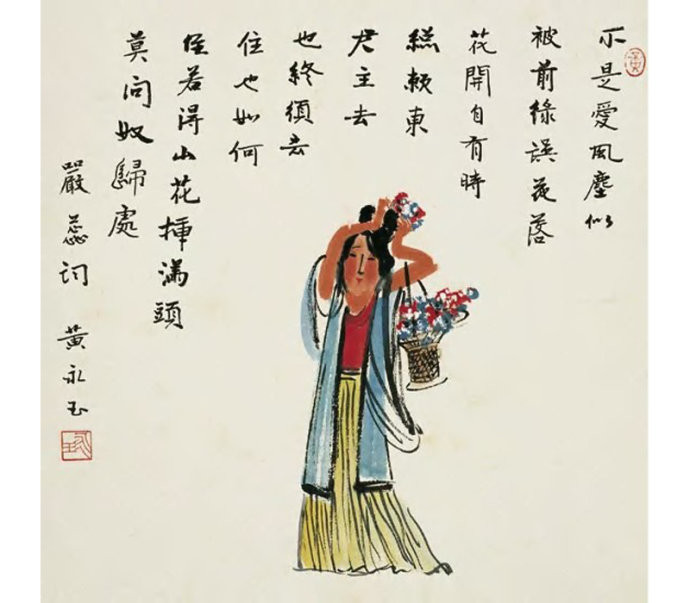 不是愛風塵似
被前緣誤花落
花開自有時
總賴東
君主去
也終須去
住也如何
住若得山花插滿頭
莫問奴歸處
嚴蕊詞 黄永玉